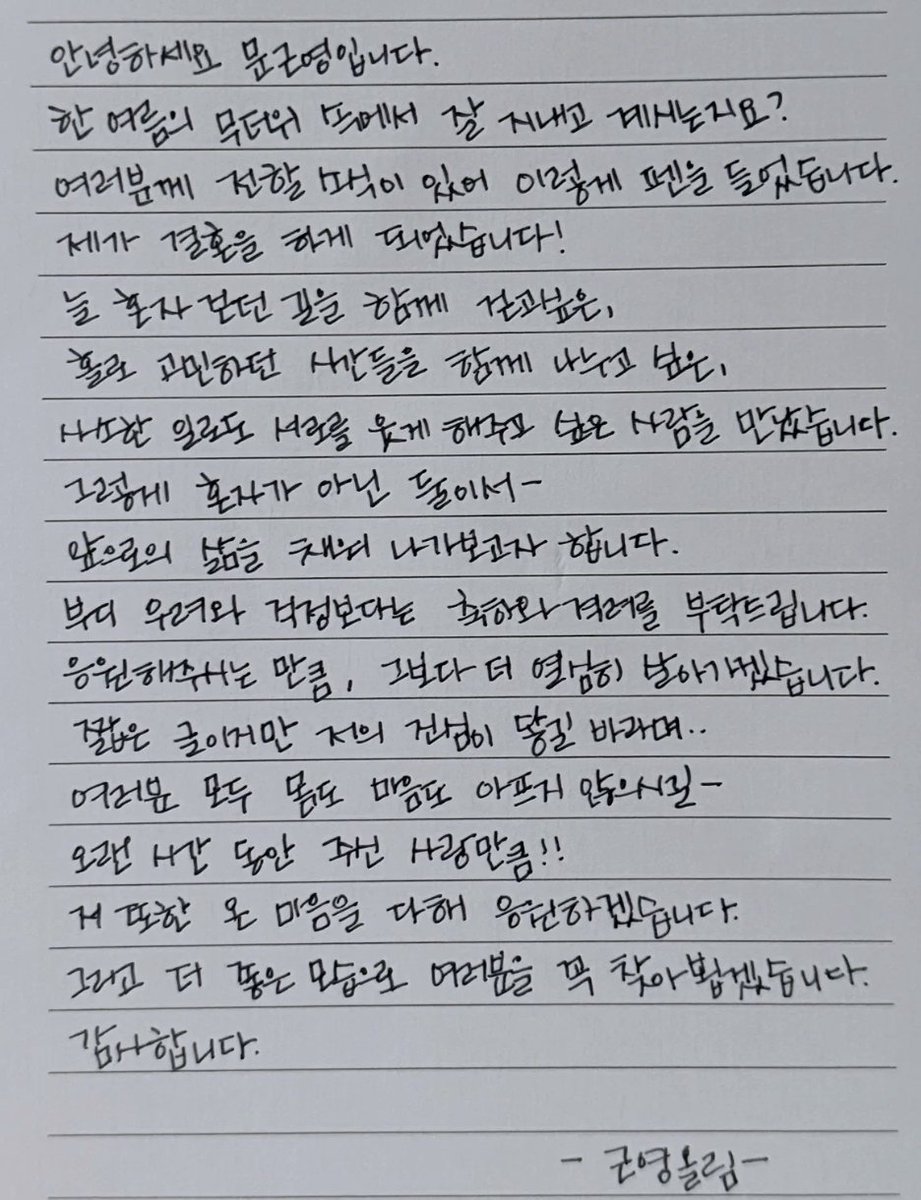 안녕하세요 문근영입니다.
한 여름의 무더위 속에서 잘 지내고 계시는지요?
여러분께 전할 소식이 있어 이렇게 펜을 들었습니다.
제가 결혼을 하게 되었습니다!
늘 혼자 걷던 길을 함께 걷고싶은,
홀로 고민하던 시간들을 함께 나누고 싶은,
사소한 일로도 서로를 웃게 해주고 싶은 사람을 만났습니다.
그렇게 혼자가 아닌 둘이서-
앞으로의 삶을 채워 나가보고자 합니다.
부디 우려와 걱정보다는 축하와 격려를 부탁드립니다.
응원해주시는 만큼, 그보다 더 열심히 살아가겠습니다.
짧은 글이지만 저의 진심이 닿길 바라며..
여러분 모두 몸도 마음도 아프지 않으시길-
오랜 시간 동안 주신 사랑만큼!!
저 또한 온 마음을 다해 응원하겠습니다.
그리고 더 좋은 모습으로 여러분을 꼭 찾아뵙겠습니다.
감사합니다.
- 근영올림-